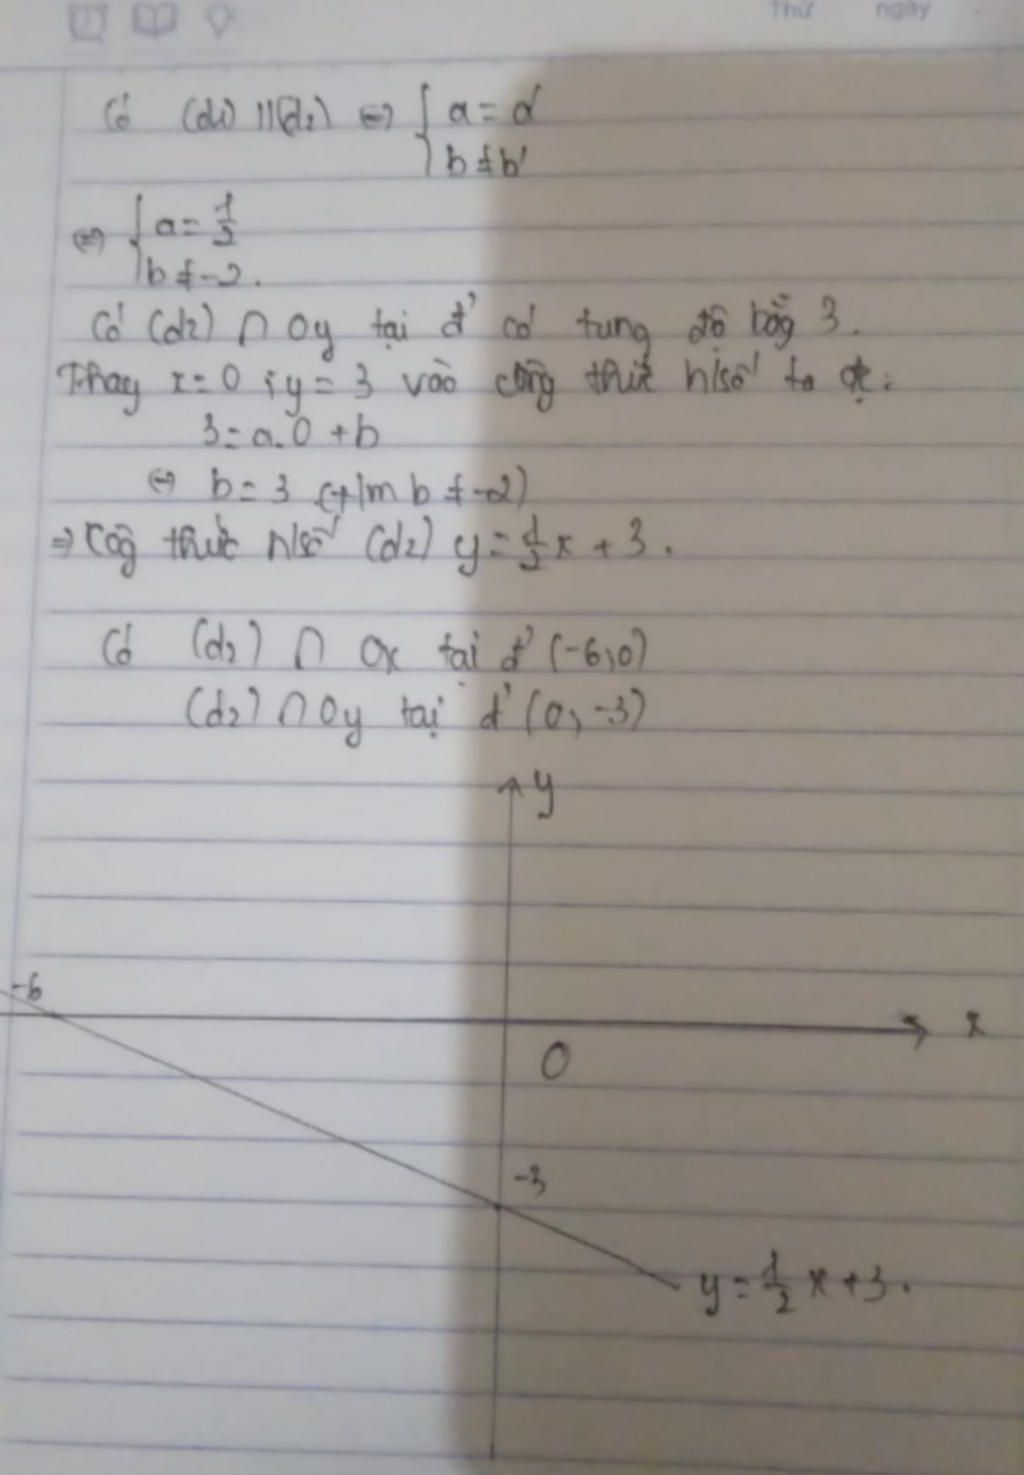 Thứ ngày
Có (d1) // (d2) ⇔ { a = a'
b ≠ b'
⇔ { a = 1/2
b ≠ -2.
Có (d2) ∩ Oy tại đ' có tung độ bằg 3.
Thay x = 0 ; y = 3 vào côg thức h/số ta đc:
3 = a.0 + b
⇔ b = 3 (t/m b ≠ -2)
⇒ Côg thức h/số (d2) y = 1/2 x + 3.
Có (d2) ∩ Ox tại đ' (-6,0)
(d2) ∩ Oy tại đ' (0, -3)
y
-6
x
O
-3
y = 1/2 x + 3.